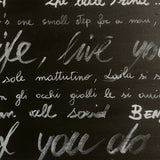 's one small step for a man,
life, live you
sole mattutino, Layla si s
n gli occhi gialli le si avvi
own will sound BEN
f you do